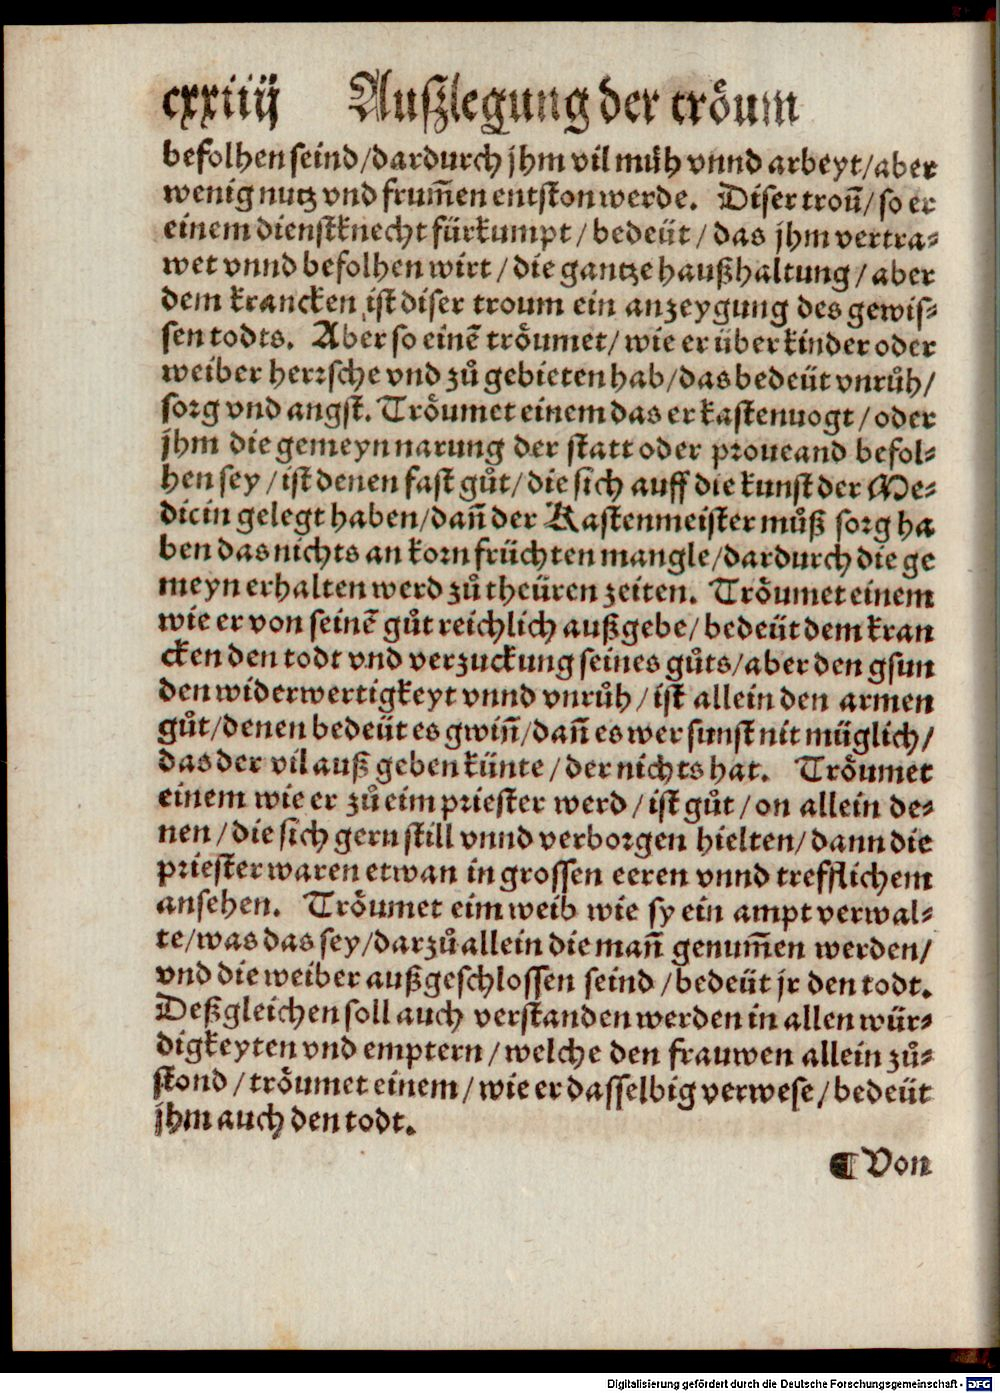 cxxiiij Auſzlegung der troͤum
befolhen ſeind/dardurch jhm vil muͤh vnnd arbeyt/aber
wenig nutz vnd frum̃en entſton werde. Diſer troum̃/ſo er
einem dienſtknecht fürkumpt/bedeüt/das jhm vertra⸗
wet vnnd befolhen wirt/die gantze haußhaltung/aber
dem krancken iſt diſer troum ein anzeygung des gewiſ⸗
ſen todts. Aber ſo einẽ troͤumet/wie er über kinder oder
weiber herꝛſche vnd zuͦ gebieten hab/das bedeüt vnruͦh/
ſoꝛg vnd angſt. Troͤumet einem das er kaſtenuogt/oder
jhm die gemeyn narung der ſtatt oder pꝛoueand befol⸗
hen ſey/iſt denen faſt guͦt/die ſich auff die kunſt der Me⸗
dicin gelegt haben/dañ der Kaſtenmeiſter muͦß ſoꝛg ha
ben das nichts an koꝛn früchten mangle/dardurch die ge
meyn erhalten werd zuͦ theüren zeiten. Troͤumet einem
wie er von ſeinẽ guͦt reichlich außgebe/bedeüt dem kran
cken den todt vnd verzuckung ſeines guͦts/aber den gſun
den widerwertigkeyt vnnd vnruͦh/iſt allein den armen
guͦt/denen bedeüt es gwiñ/dañ es wer ſunſt nit müglich/
das der vil auß geben künte/der nichts hat. Troͤumet
einem wie er zuͦ eim pꝛieſter werd/iſt guͦt/on allein de⸗
nen/die ſich gern ſtill vnnd verboꝛgen hielten/dann die
pꝛieſter waren etwan in groſſen eeren vnnd trefflichem
anſehen. Troͤumet eim weib wie ſy ein ampt verwal⸗
te/was das ſey/darzuͦ allein die mañ genum̃en werden/
vnd die weiber außgeſchloſſen ſeind/bedeüt jr den todt.
Deßgleichen ſoll auch verſtanden werden in allen wür⸗
digkeyten vnd emptern/welche den frauwen allein zuͦ⸗
ſtond/troͤumet einem/wie er daſſelbig verweſe/bedeüt
jhm auch den todt.
¶Von
Digitalisierung gefördert durch die Deutsche Forschungsgemeinschaft - DFG